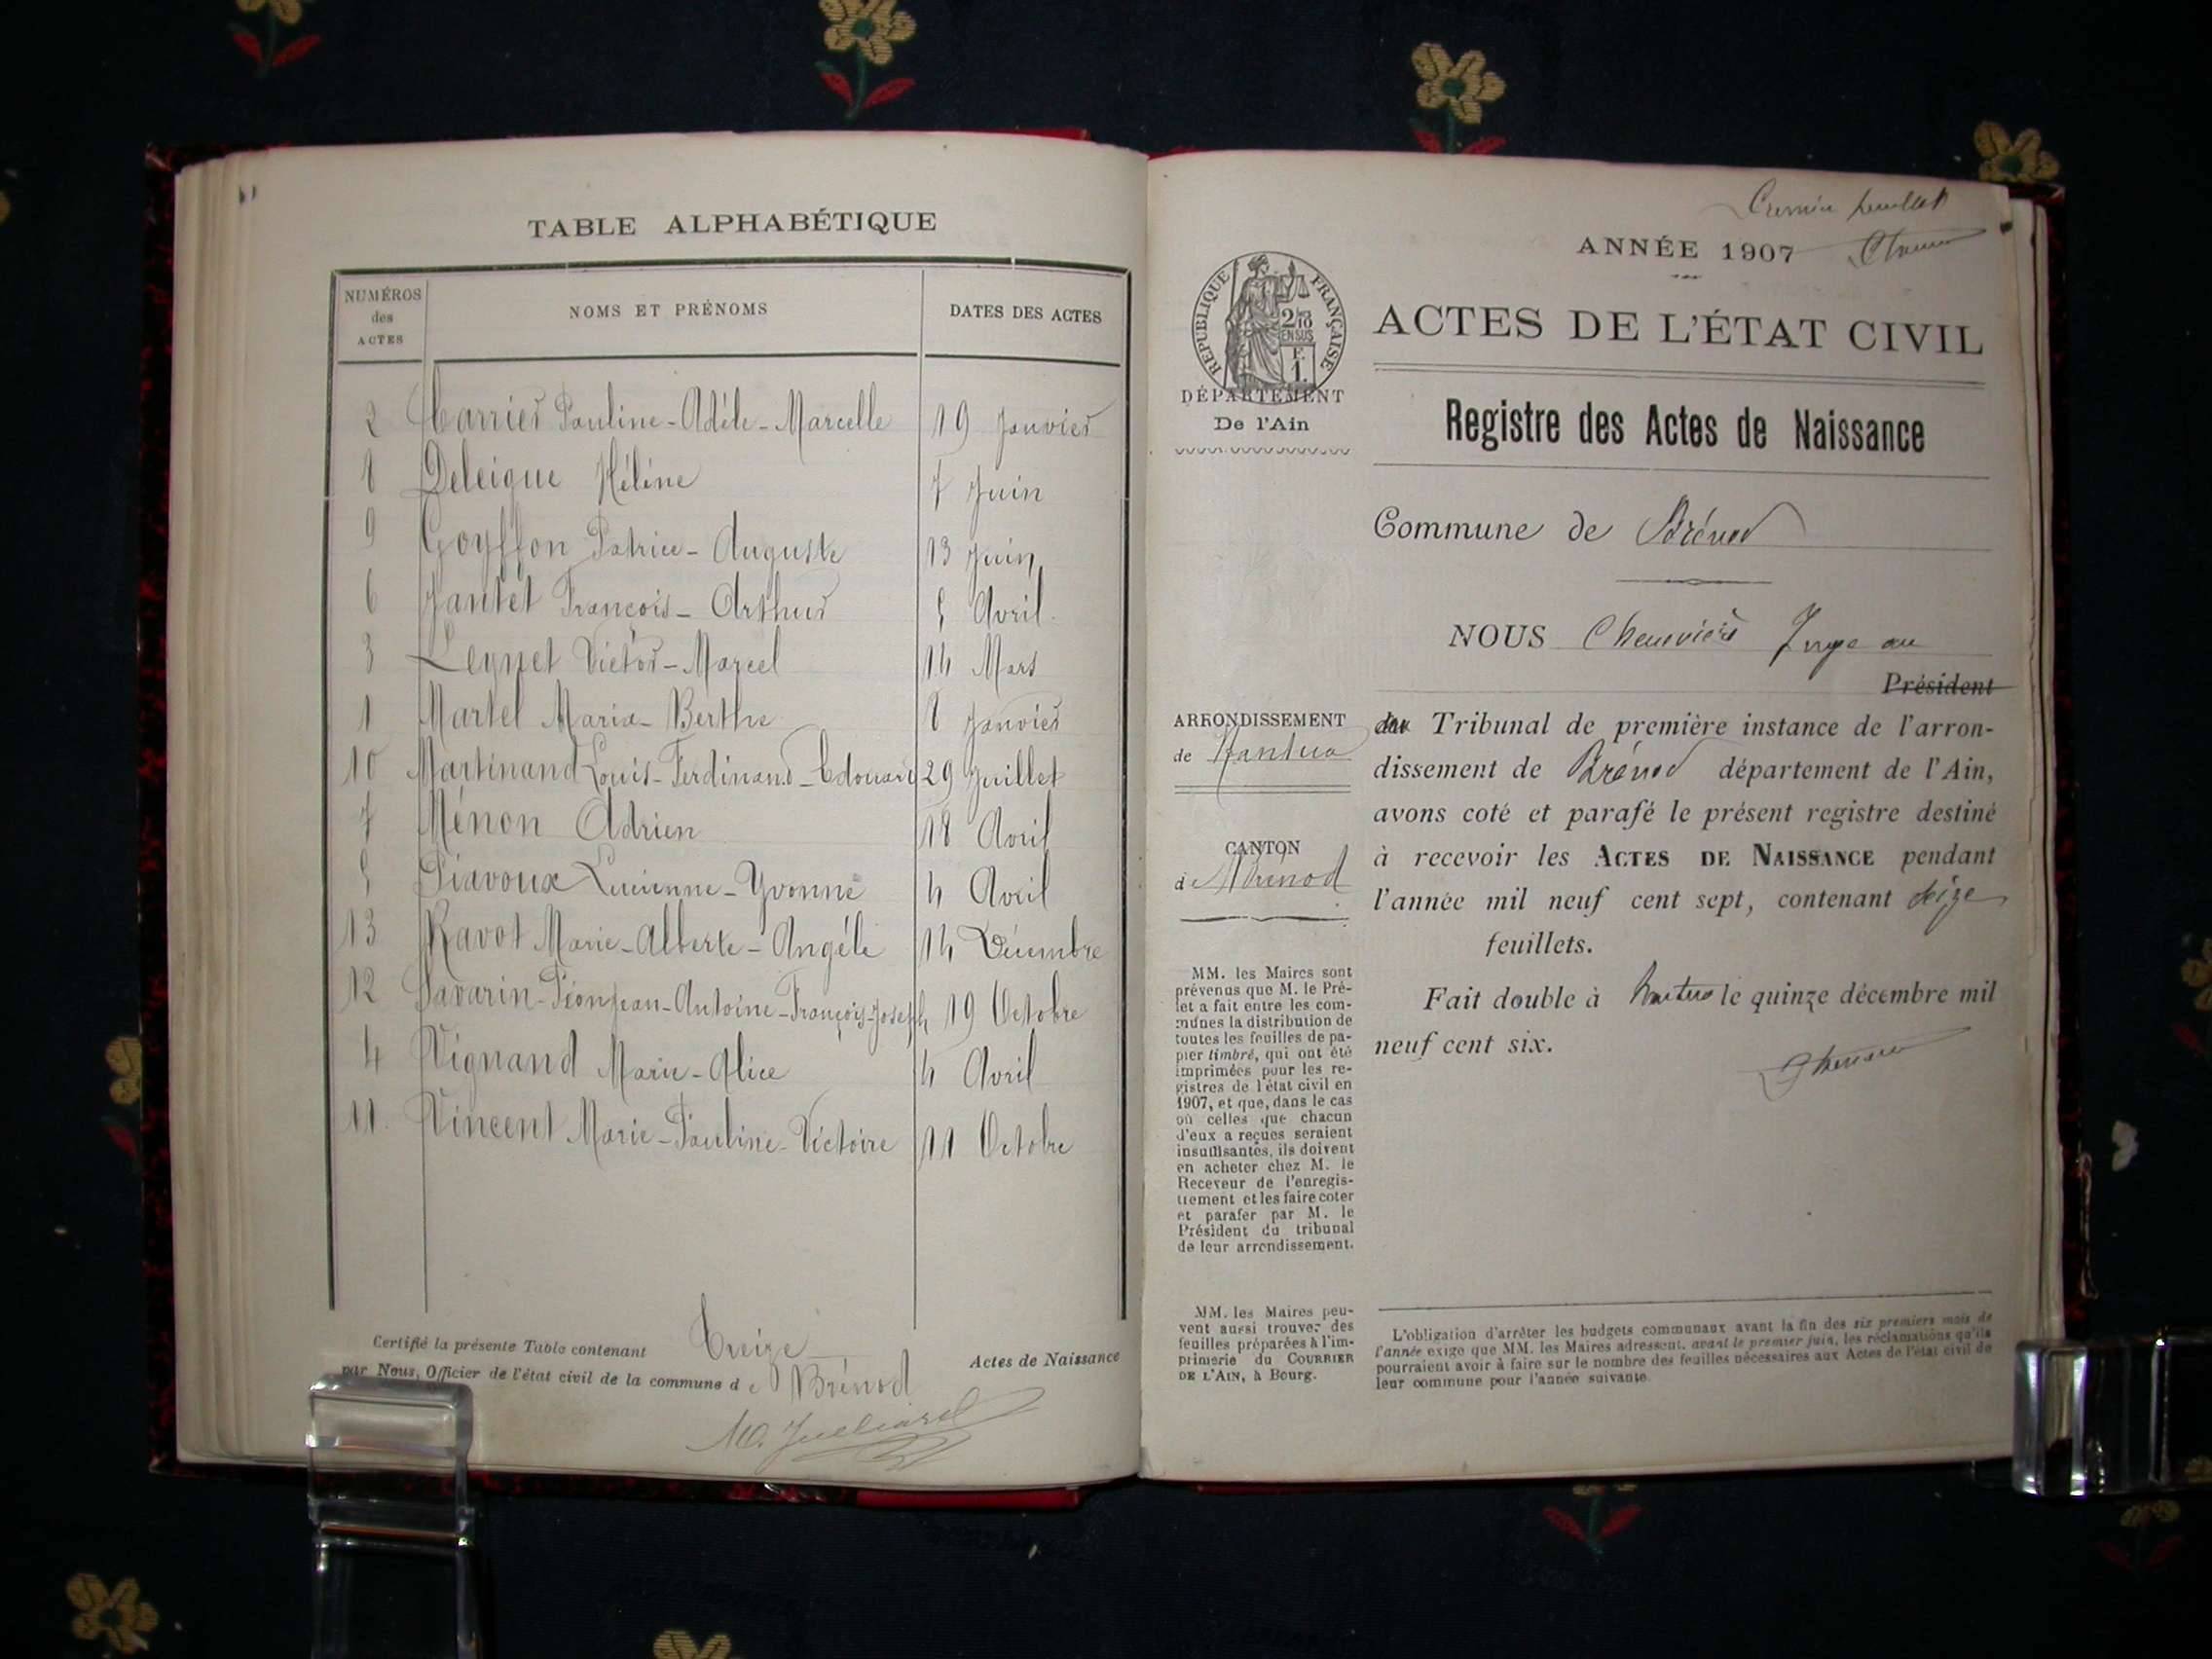 TABLE ALPHABÉTIQUE
NUMÉROS des ACTES
NOMS ET PRÉNOMS
DATES DES ACTES
2 Carrier Pauline-Adèle-Marcelle 19 Janvier
8 Deleigue Hélène 7 Juin
9 Goyffon Patrice-Auguste 13 Juin
6 Jantet François-Arthur 5 Avril
3 Leynet Victor-Marcel 14 Mars
1 Martel Maria-Berthe 8 Janvier
10 Martinand Louis-Ferdinand-Edouard 29 Juillet
7 Ménon Adrien 18 Avril
5 Piavoux Lucienne-Yvonne 4 Avril
13 Ravot Marie-Alberte-Angèle 14 Décembre
12 Savarin-Péon Jean-Antoine-François-Joseph 19 Octobre
4 Vignand Marie-Alice 4 Avril
11 Vincent Marie-Pauline-Victoire 11 Octobre
Certifié la présente Table contenant Treize Actes de Naissance
par Nous, Officier de l'état civil de la commune de Brénod
Premier feuillet
ANNÉE 1907
RÉPUBLIQUE FRANÇAISE
2/10
EN SUS
F.
1.
ACTES DE L'ÉTAT CIVIL
DÉPARTEMENT
De l'Ain
Registre des Actes de Naissance
Commune de Brénod
NOUS Chenevier Juge au
Président
Tribunal de première instance de l'arron-
dissement de Brénod département de l'Ain,
avons coté et parafé le présent registre destiné
à recevoir les ACTES DE NAISSANCE pendant
l'année mil neuf cent sept, contenant seize
feuillets.
Fait double à Nantua le quinze décembre mil
neuf cent six.
ARRONDISSEMENT
de Nantua
CANTON
de Brénod
MM. les Maires sont
prévenus que M. le Pré-
fet a fait entre les com-
munes la distribution de
toutes les feuilles de pa-
pier timbré, qui ont été
imprimées pour les re-
gistres de l'état civil en
1907, et que, dans le cas
où celles que chacun
d'eux a reçues seraient
insuffisantes, ils doivent
en acheter chez M. le
Receveur de l'enregis-
trement et les faire coter
et parafer par M. le
Président du tribunal
de leur arrondissement.
MM. les Maires peu-
vent aussi trouver des
feuilles préparées à l'im-
primerie du COURRIER
DE L'AIN, à Bourg.
L'obligation d'arrêter les budgets communaux avant la fin des six premiers mois de
l'année exige que MM. les Maires adressent, avant le premier juin, les réclamations qu'ils
pourraient avoir à faire sur le nombre des feuilles nécessaires aux Actes de l'état civil de
leur commune pour l'année suivante.